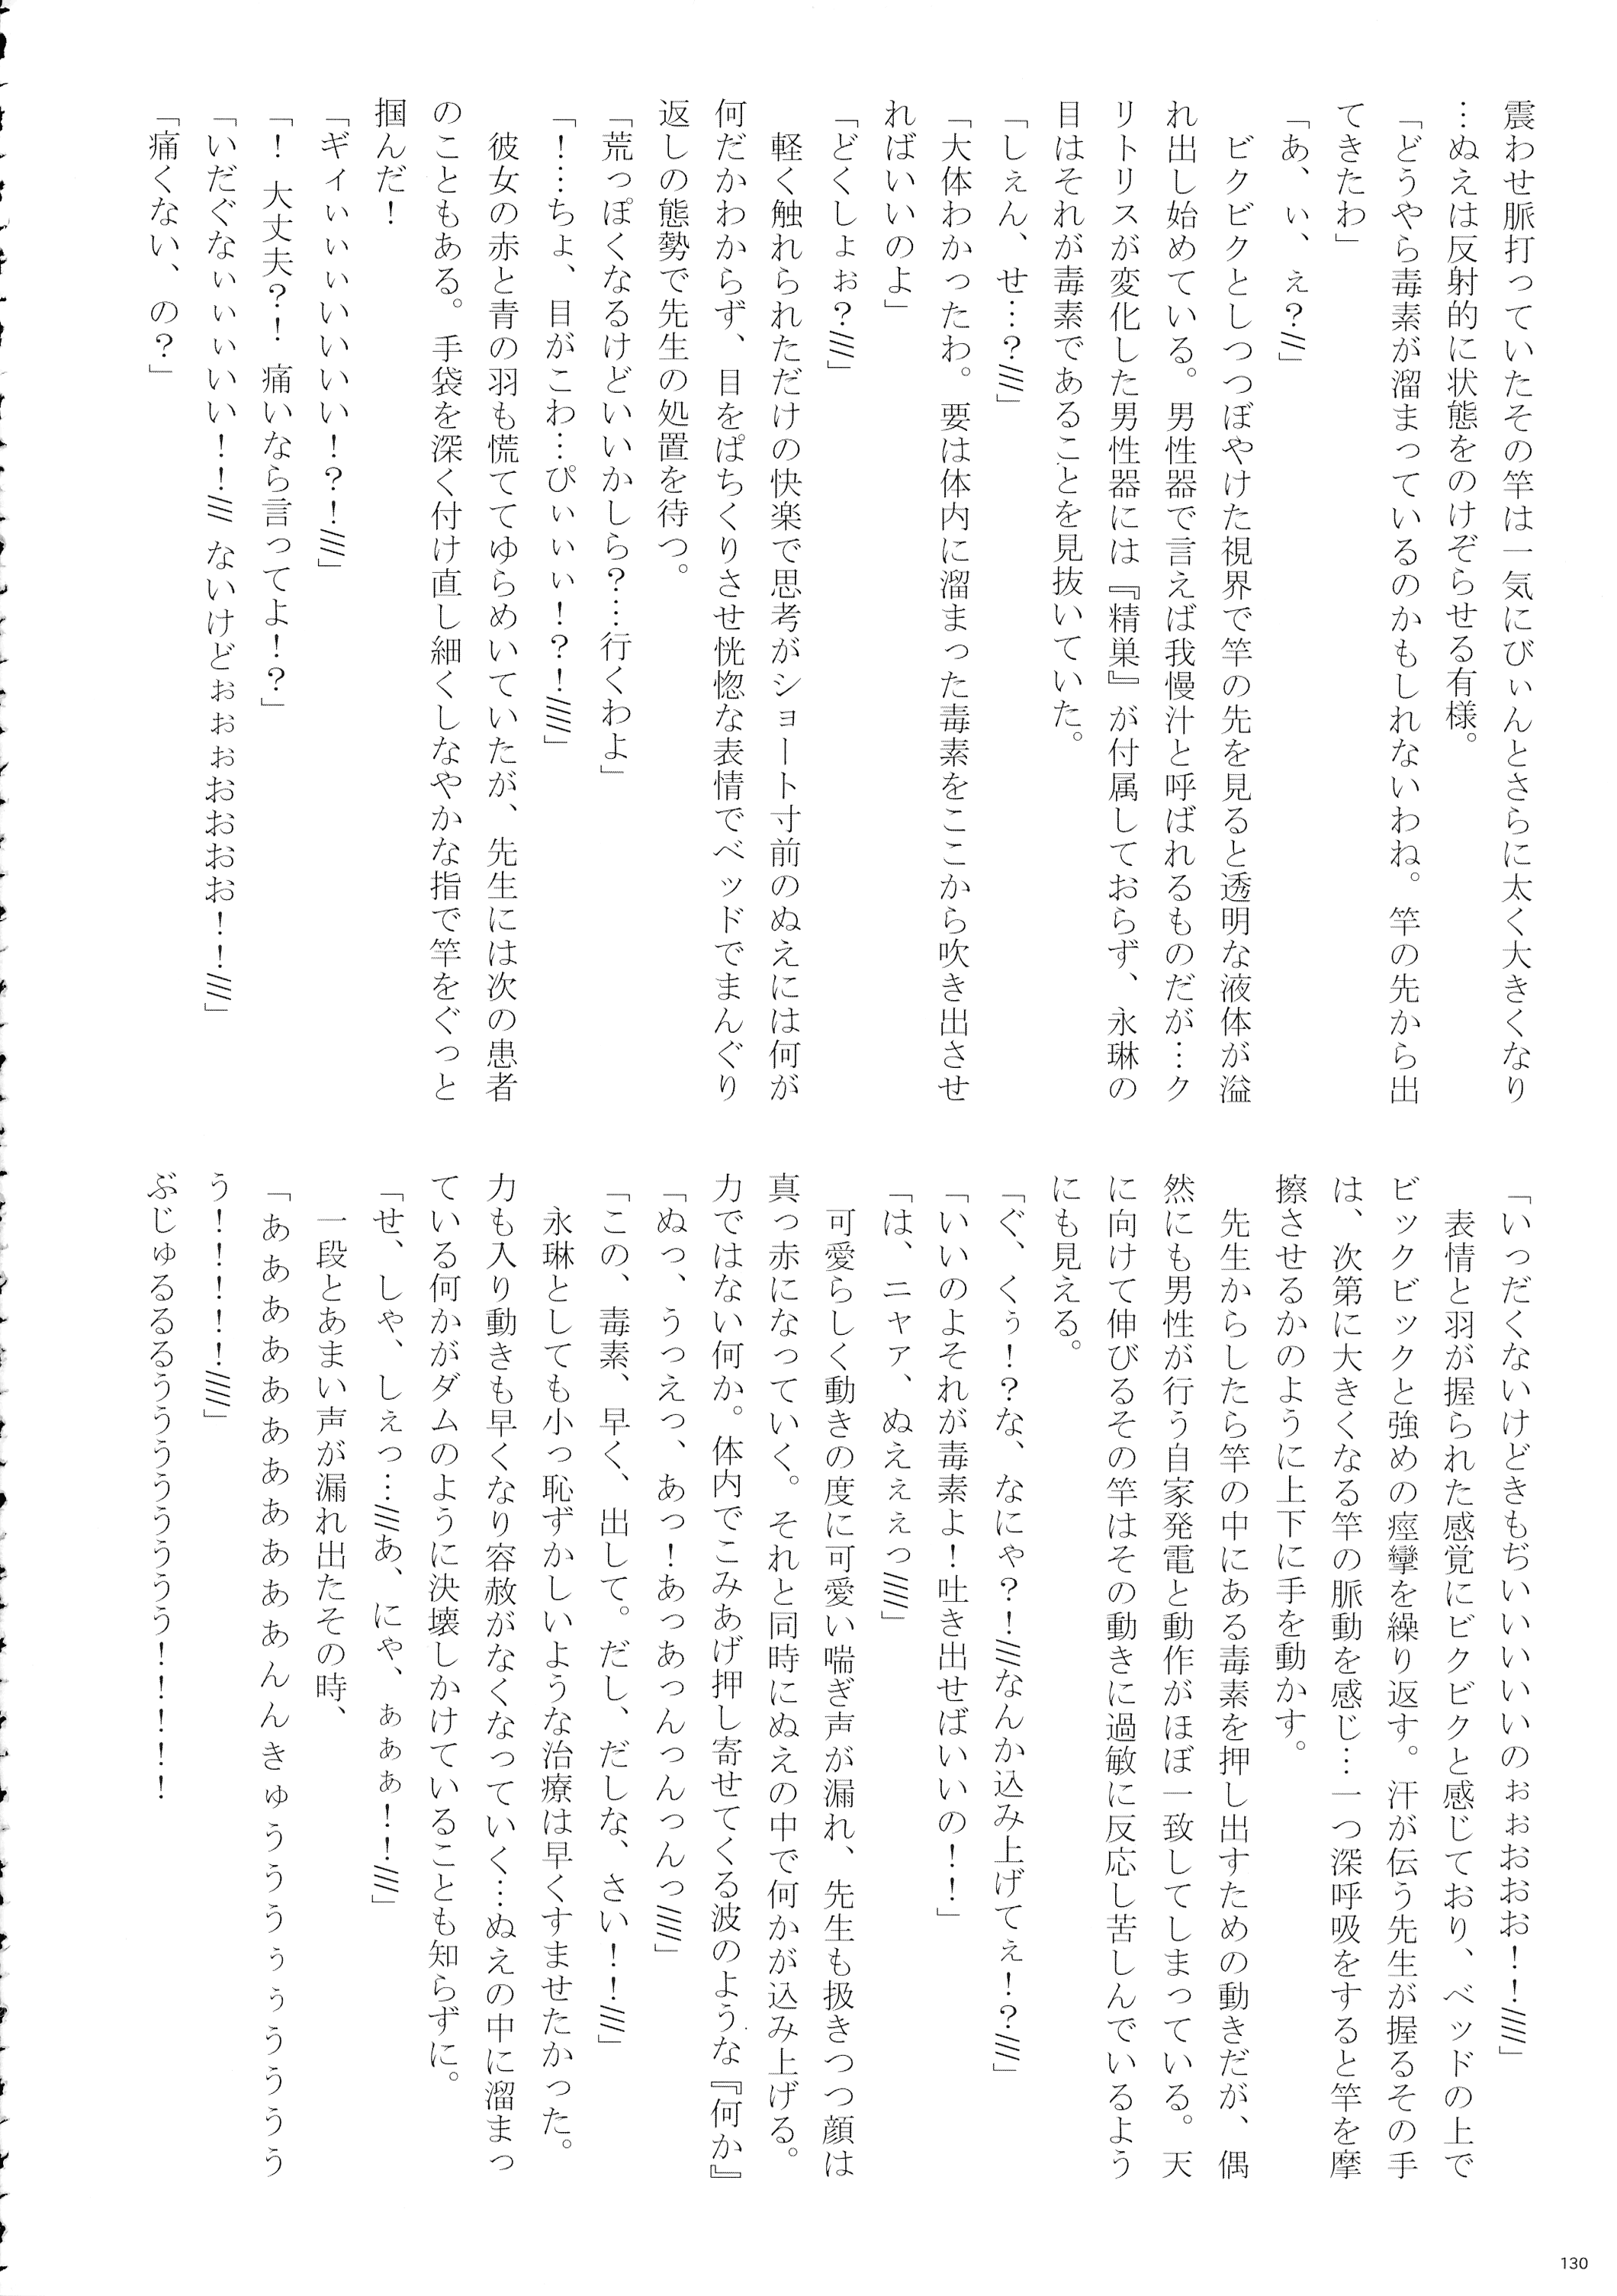 震わせ脈打っていたその竿は一気にびぃんとさらに太く大きくなり
…ぬえは反射的に状態をのけぞらせる有様。
「どうやら毒素が溜まっているのかもしれないわね。竿の先から出
てきたわ」
「あ、ぃ、ぇ？///」
　ビクビクとしつつぼやけた視界で竿の先を見ると透明な液体が溢
れ出し始めている。男性器で言えば我慢汁と呼ばれるものだが…ク
リトリスが変化した男性器には『精巣』が付属しておらず、永琳の
目はそれが毒素であることを見抜いていた。
「しぇん、せ…？////」
「大体わかったわ。要は体内に溜まった毒素をここから吹き出させ
ればいいのよ」
「どくしょぉ？////」
　軽く触れられただけの快楽で思考がショート寸前のぬえには何が
何だかわからず、目をぱちくりさせ恍惚な表情でベッドでまんぐり
返しの態勢で先生の処置を待つ。
「荒っぽくなるけどいいかしら？…行くわよ」
「！…ちょ、目がこわ…ぴぃぃぃ！？！/////」
　彼女の赤と青の羽も慌ててゆらめいていたが、先生には次の患者
のこともある。手袋を深く付け直し細くしなやかな指で竿をぐっと
掴んだ！
「ギィぃぃぃいいいい！？！////」
「！　大丈夫？！　痛いなら言ってよ！？」
「いだぐなぃぃぃいい！！///　ないけどぉぉぉおおおお！！////」
「痛くない、の？」
「いっだくないけどきもぢいいいいいのぉぉおおお！！/////」
　表情と羽が握られた感覚にビクビクと感じており、ベッドの上で
ビックビックと強めの痙攣を繰り返す。汗が伝う先生が握るその手
は、次第に大きくなる竿の脈動を感じ…一つ深呼吸をすると竿を摩
擦させるかのように上下に手を動かす。
　先生からしたら竿の中にある毒素を押し出すための動きだが、偶
然にも男性が行う自家発電と動作がほぼ一致してしまっている。天
に向けて伸びるその竿はその動きに過敏に反応し苦しんでいるよう
にも見える。
「ぐ、くぅ！？な、なにゃ？！///なんか込み上げてぇ！？////」
「いいのよそれが毒素よ！吐き出せばいいの！！」
「は、ニャァ、ぬえぇぇっ/////」
　可愛らしく動きの度に可愛い喘ぎ声が漏れ、先生も扱きつつ顔は
真っ赤になっていく。それと同時にぬえの中で何かが込み上げる。
力ではない何か。体内でこみあげ押し寄せてくる波のような『何か』
「ぬっ、うっえっ、あっ！あっあっんっんっんっ/////」
「この、毒素、早く、出して。だし、だしな、さい！！////」
　永琳としても小っ恥ずかしいような治療は早くすませたかった。
力も入り動きも早くなり容赦がなくなっていく…ぬえの中に溜まっ
ている何かがダムのように決壊しかけていることも知らずに。
「せ、しゃ、しぇっ…///あ、にゃ、ぁぁぁ！！////」
　一段とあまい声が漏れ出たその時、
「ああああああああああああんんきゅうううぅぅうううう
う！！！！！/////」
ぶじゅるるるるうううううううう！！！！！
130